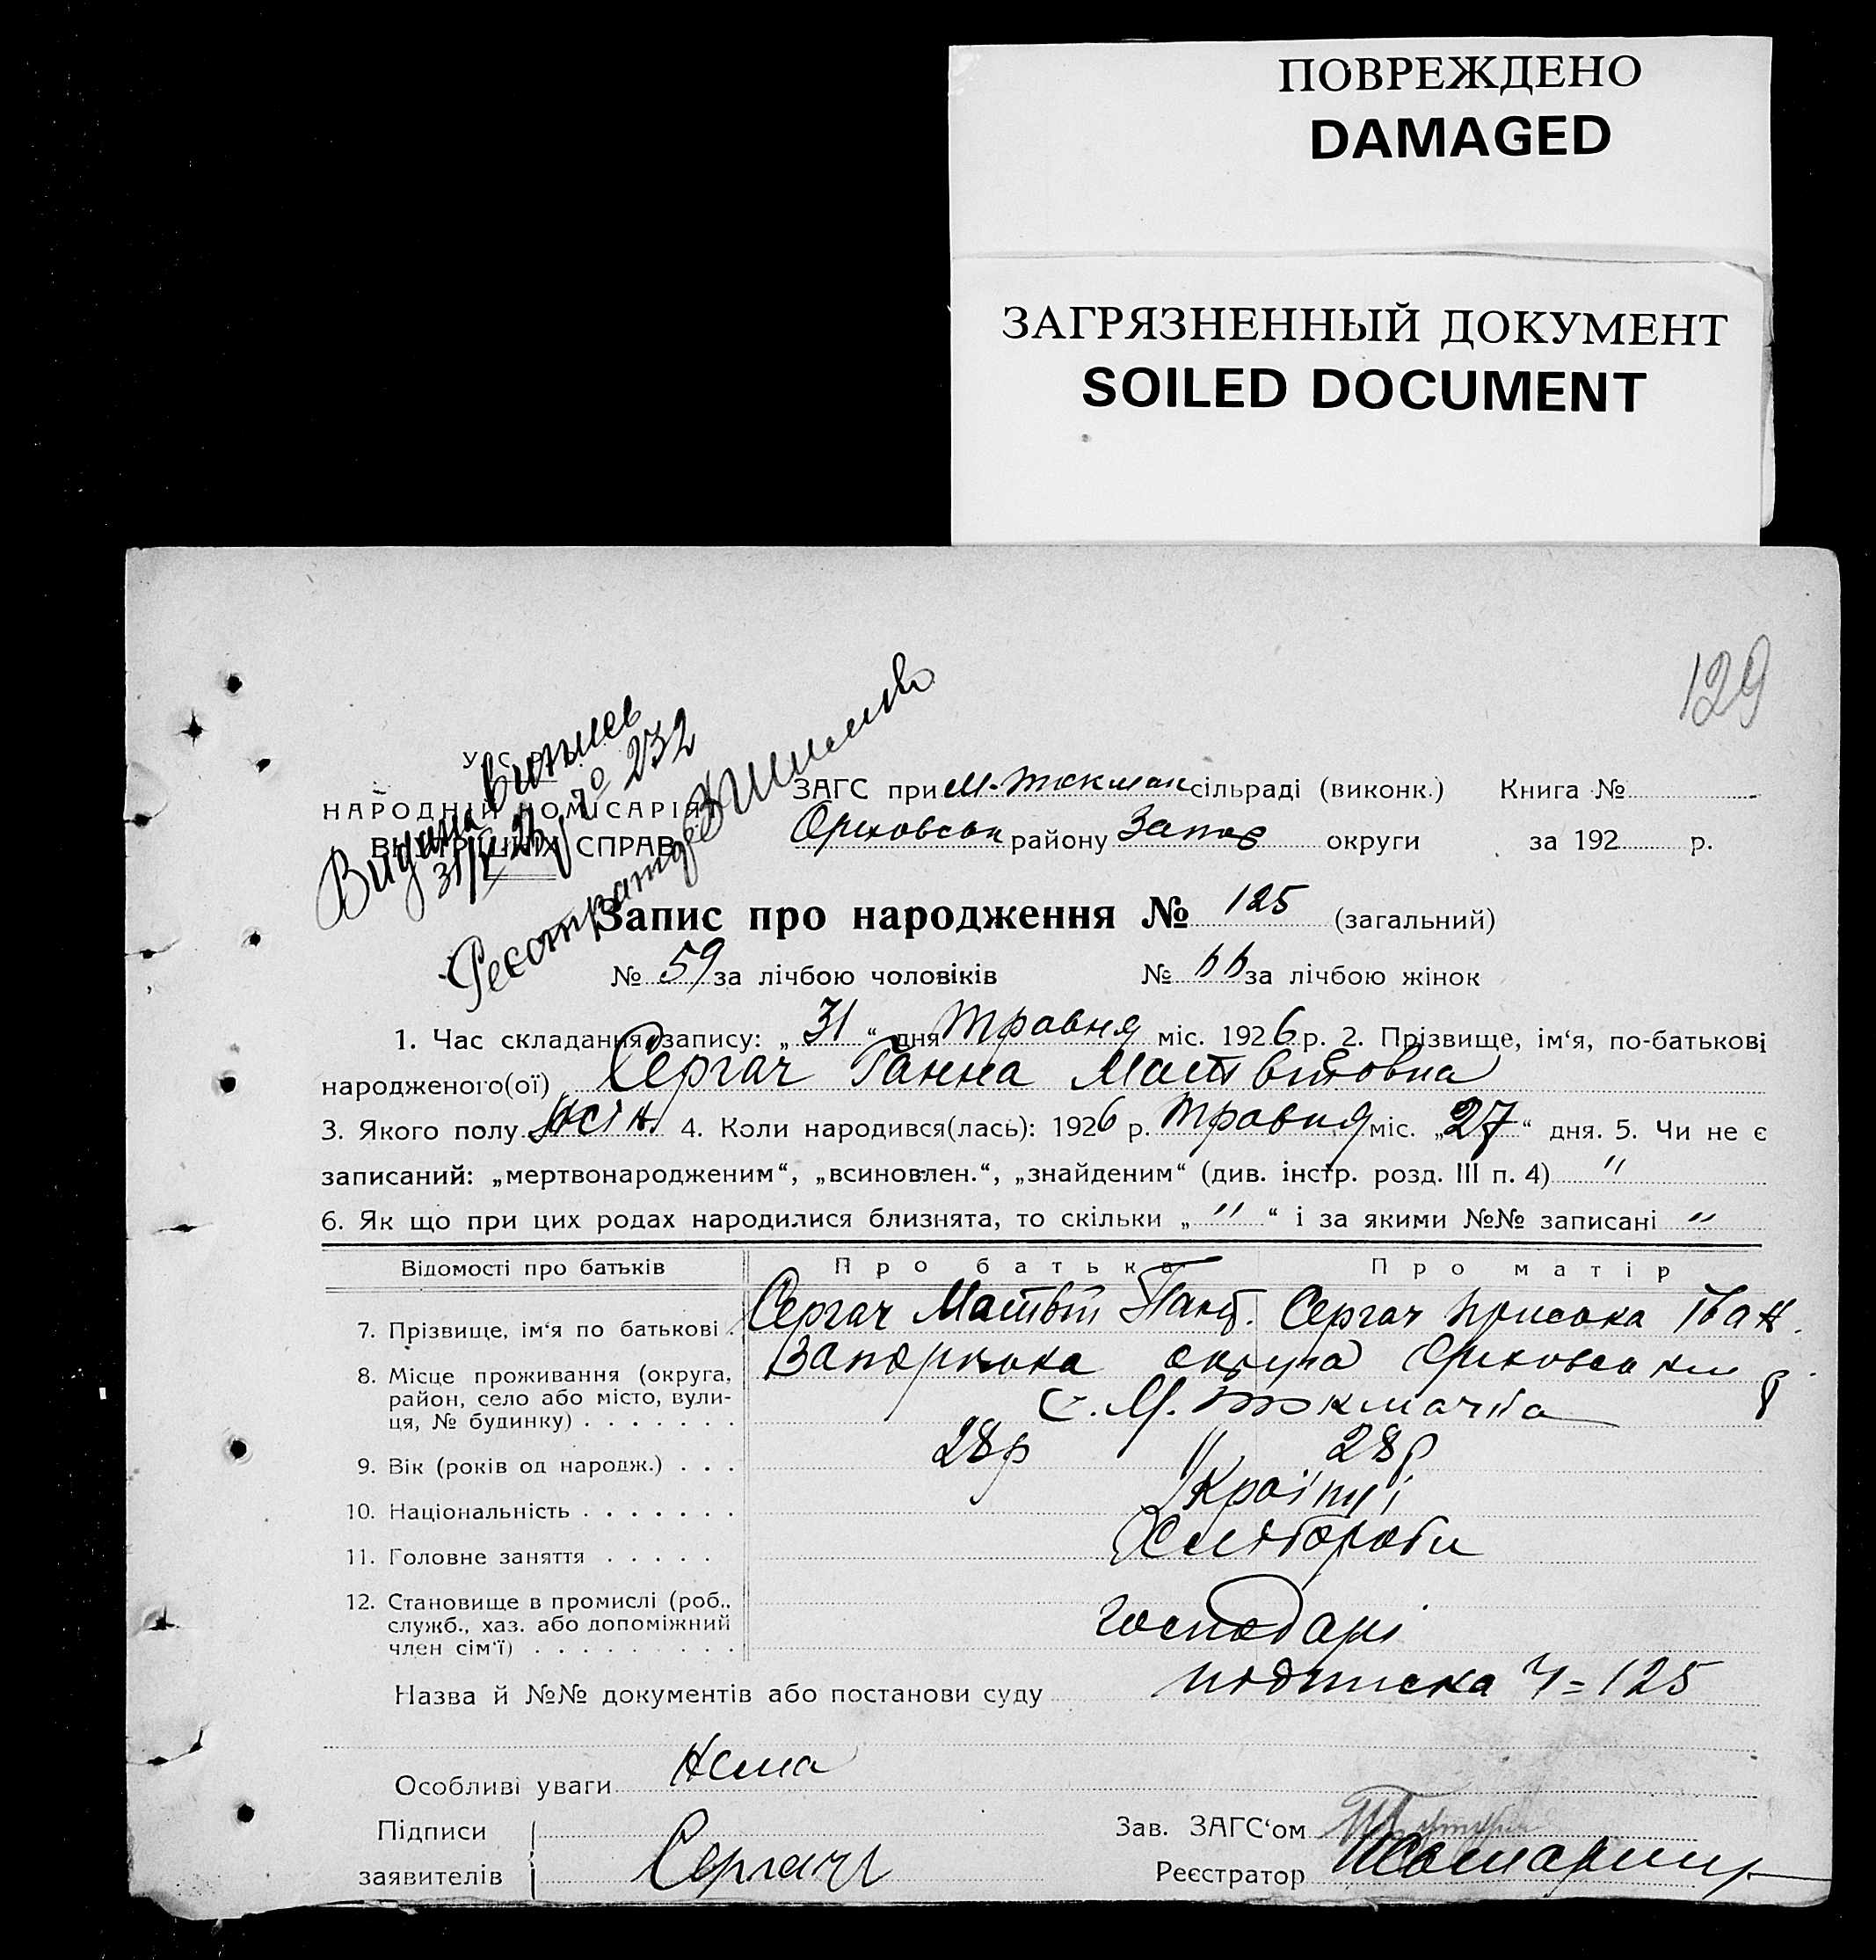 ПОВРЕЖДЕНО
DAMAGED
ЗАГРЯЗНЕННЫЙ ДОКУМЕНТ
SOILED DOCUMENT
129
У С
НАРОДНІЙ КОМІСАРІЯ
ВНУТРІШНІХ СПРАВ
№ 232
ЗАГС при М-Токмач сільраді (виконк.) Книга №
Оріховськ району Запор округи за 192 р.
Запис про народження № 125 (загальний)
№ 59 за лічбою чоловіків № 66 за лічбою жінок
1. Час складання запису: „ 31 “ дня Травня міс. 1926 р. 2. Прізвище, ім‘я, по-батькові
народженого(ої) Сергач Ганна Матвітовна
3. Якого полу жін. 4. Коли народився(лась): 1926 р. Травня міс. „27“ дня. 5. Чи не є
записаний: „мертвонародженим“, „всиновлен.“, „знайденим“ (див. інстр. розд. III п. 4) "
6. Як що при цих родах народилися близнята, то скільки „ " “ і за якими №№ записані "
Відомості про батьків Про батька Про матір
7. Прізвище, ім‘я по батькові . Сергач Матвій Сергач Приська Іван.
8. Місце проживання (округа, район, село або місто, вулиця, № будинку) . . . . . . . Запорізька округа Оріховський р.
с. М. Токмачка
9. Вік (років од народж.) . . . 28 р 28 р
10. Національність . . . . . . . Країнці
11. Головне заняття . . . . . Хлібороби
12. Становище в промислі (роб., служб., хаз. або допоміжний член сім‘ї) . . . . . . . . . господарі
Назва й №№ документів або постанови суду підписка Ч=125
Особливі уваги Нема
Підписи
заявителів Сергач
Зав. ЗАГС‘ом
Реєстратор